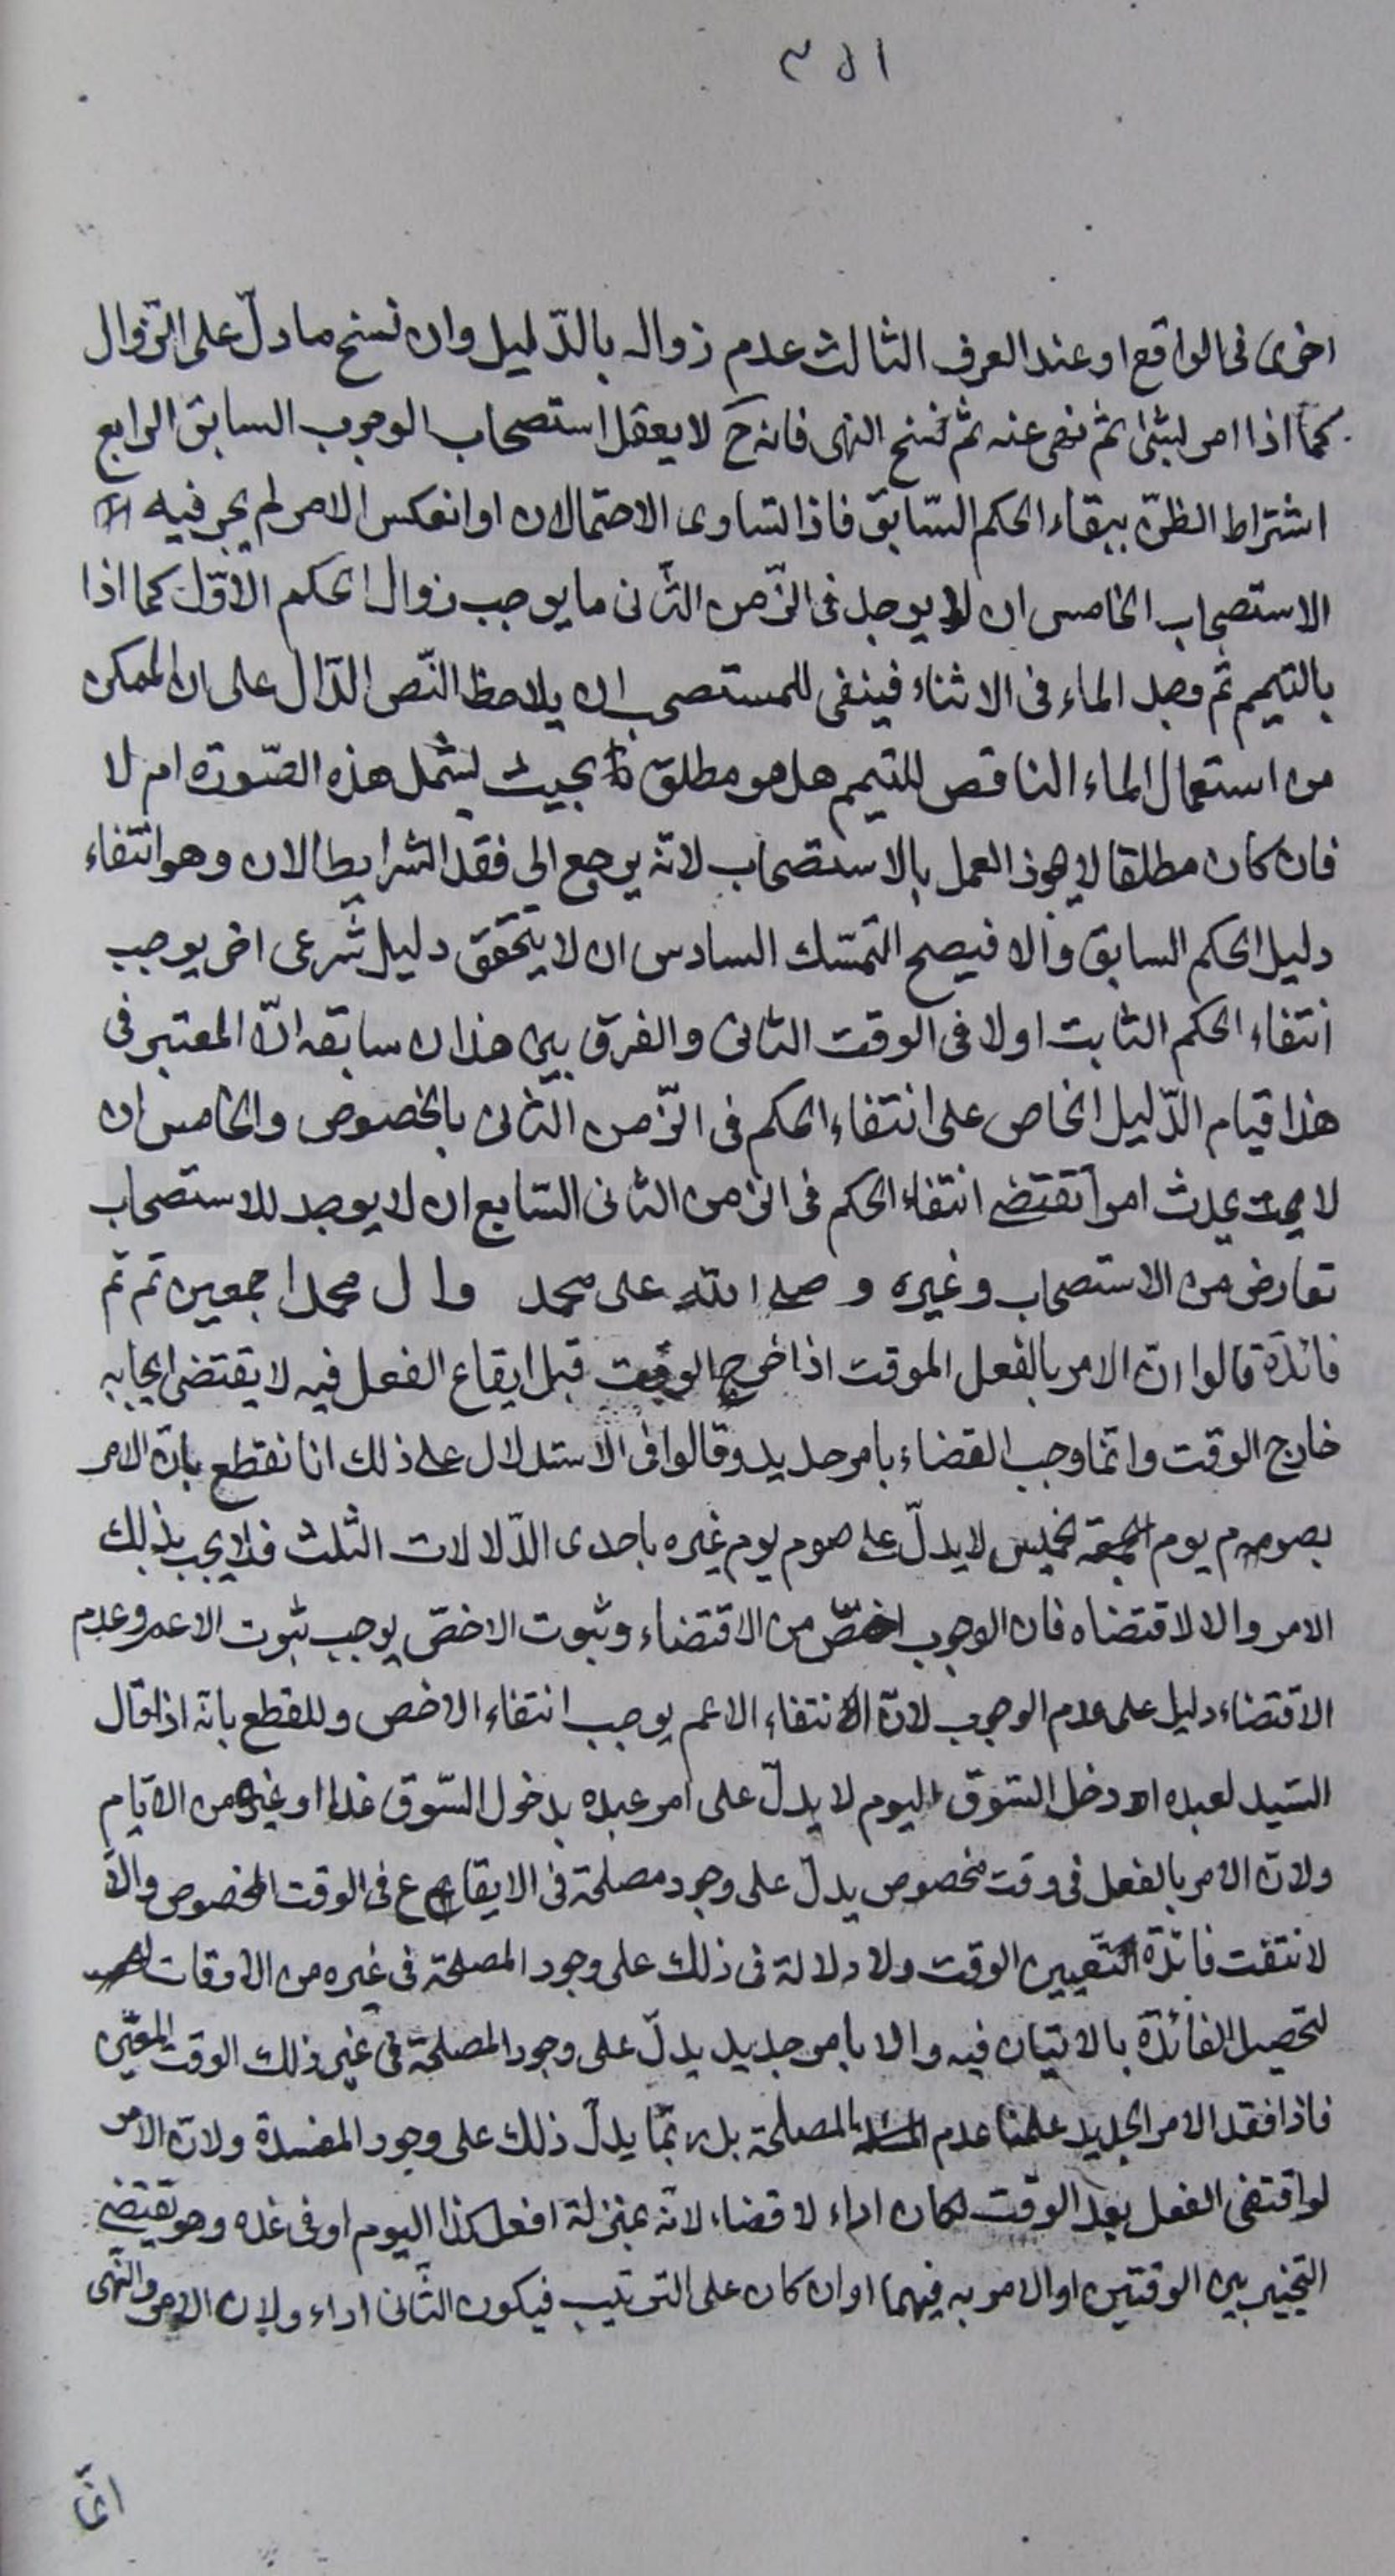 اخرى فى الواقع او عند العرف الثالث عدم زواله بالدّليل وان نسخ ما دلّ على الزّوال
كما اذا امر بشئ ثم نهى عنه ثم نسخ النهى فانه ح لا يعقل استصحاب الوجوب السابق الرابع
اشتراط الظنّ ببقاء الحكم السّابق فاذا تساوى الاحتمالان او انعكس الامر لم يجر فيه
الاستصحاب الخامس ان لا يوجد فى الزّمن الثّانى ما يوجب زوال الحكم الاوّل كما اذا
بالتيمم ثم وجد الماء فى الاثناء فينفى للمستصحب ان يلاحظ النّص الدّال على ان الممكن
من استعمال الماء الناقص للتيمم هل هو مطلق بحيث يشمل هذه الصّورة ام لا
فان كان مطلقا لا يجوز العمل بالاستصحاب لانّه يرجع الى فقد الشرايط الان وهو انتفاء
دليل الحكم السابق والا فيصح التمسّك السادس ان لا يتحقق دليل شرعى اخر يوجب
انتفاء الحكم الثابت اولا فى الوقت الثانى والفرق بين هذا و سابقه انّ المعتبر فى
هذا قيام الدّليل الخاص على انتفاء الحكم فى الزّمن الثّانى بالخصوص والخامس ان
لا يحدث امرا تقتضى انتفاء الحكم فى الزمن الثانى السّابع ان لا يوجد للاستصحاب
تعارض من الاستصحاب وغيره و صلى الله على محمد وال محمد اجمعين تم تم
فائدة قالوا انّ الامر بالفعل الموقت اذا خرج الوقت قبل ايقاع الفعل فيه لا يقتضى ايجابه
خارج الوقت وانّما وجب القضاء بامر جديد وقالوا فى الاستدلال على ذلك انا نقطع بانّ الامر
بصوم يوم الخميس لا يدلّ على صوم يوم غيره باحدى الدّلالات الثلث فلا يجب بذلك
الامر والا لاقتضاه فان الوجوب اخصّ من الاقتضاء وثبوت الاخصّ يوجب ثبوت الاعم وعدم
الاقتضاء دليل على عدم الوجوب لانّ انتفاء الاعم يوجب انتفاء الاخص وللقطع بانّه اذا قال
السّيد لعبده ادخل السّوق اليوم لا يدلّ على امر عبده بدخول السّوق غدا او غيره من الايّام
ولانّ الامر بالفعل فى وقت مخصوص يدلّ على وجود مصلحة فى الايقاع فى الوقت المخصوص والّا
لانتفت فائدة التّعيين الوقت ولا دلالة فى ذلك على وجود المصلحة فى غيره من الاوقات
لتحصيل الفائدة بالاتيان فيه والا بامر جديد يدلّ على وجود المصلحة فى غير ذلك الوقت المعيّن
فاذا فقد الامر الجديد علمنا عدم المصلحة بل ربّما يدلّ ذلك على وجود المفسدة ولانّ الامر
لو اقتضى الفعل بعد الوقت لكان اداء لا قضاء لانّه بمنزلة افعل كذا اليوم او فى غده وهو يقتضى
التخيير بين الوقتين او الامر به فيهما او ان كان على الترتيب فيكون الثّانى اداء ولان الامر والنّهى
انّما